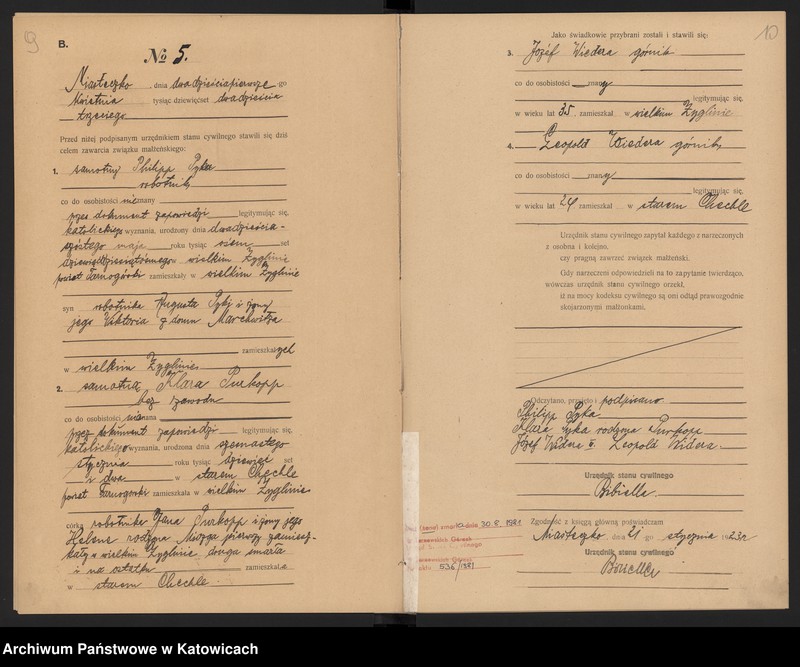 9
B.
No 5.
Miasteczko dnia dwadzieścia pierwszego
kwietnia tysiąc dziewięćset dwadzieścia
trzeciego
Przed niżej podpisanym urzędnikiem stanu cywilnego stawili się dziś
celem zawarcia związku małżeńskiego:
1. samotny Philipp Pyka
robotnik
co do osobistości nieznany
przez dokument zapowiedzi legitymując się,
katolickiego wyznania, urodzony dnia dwadzieścia-
szóstego maja roku tysiąc osiem set
w wielkim Żyglinie
powiat Tarnogórski zamieszkały w wielkim Żyglinie
syn robotnika Augusta Pyki i żony
jego Viktoria z domu
zamieszkałych
w wielkim Żyglinie
2. samotna Klara Purkopp
bez zawodu
co do osobistości nieznana
przez dokument zapowiedzi legitymując się,
katolickiego wyznania, urodzona dnia
stycznia roku tysiąc dziewięć set
i dwa w starem Chechle
powiat Tarnogórski zamieszkała w wielkim Żyglinie
córka robotnika Jana Purkopp i żony jego
Helene rodzona pierwszy zamiesz-
kały w wielkim Żyglinie druga zmarła
i na ostatku zamieszkała
w starem Chechle.
10
Jako świadkowie przybrani zostali i stawili się:
3. Józef Wiedera górnik
co do osobistości znany
legitymując się,
w wieku lat 35, zamieszkał w wielkim Żyglinie
4. Leopold Wiedera górnik
co do osobistości znany
legitymując się,
w wieku lat 24 zamieszkał w starem Chechle
Urzędnik stanu cywilnego zapytał każdego z narzeczonych
z osobna i kolejno.
czy pragną zawrzeć związek małżeński.
Gdy narzeczeni odpowiedzieli na to zapytanie twierdząco,
wówczas urzędnik stanu cywilnego orzekł,
iż na mocy kodeksu cywilnego są oni odtąd prawozgodnie
skojarzonymi małżonkami.
Odczytano, przyjęto i podpisano
Philipp Pyka
Klara Pyka rodzona Purkopp
Józef Widera Leopold Widera.
Urzędnik stanu cywilnego
Bibiella.
Zgodność z księgą główną poświadczam
Miasteczko, dnia 21 go stycznia 1923r.
Urzędnik stanu cywilnego
Bibiella
dnia 30.8.1981
536/1981
Archiwum Państwowe w Katowicach